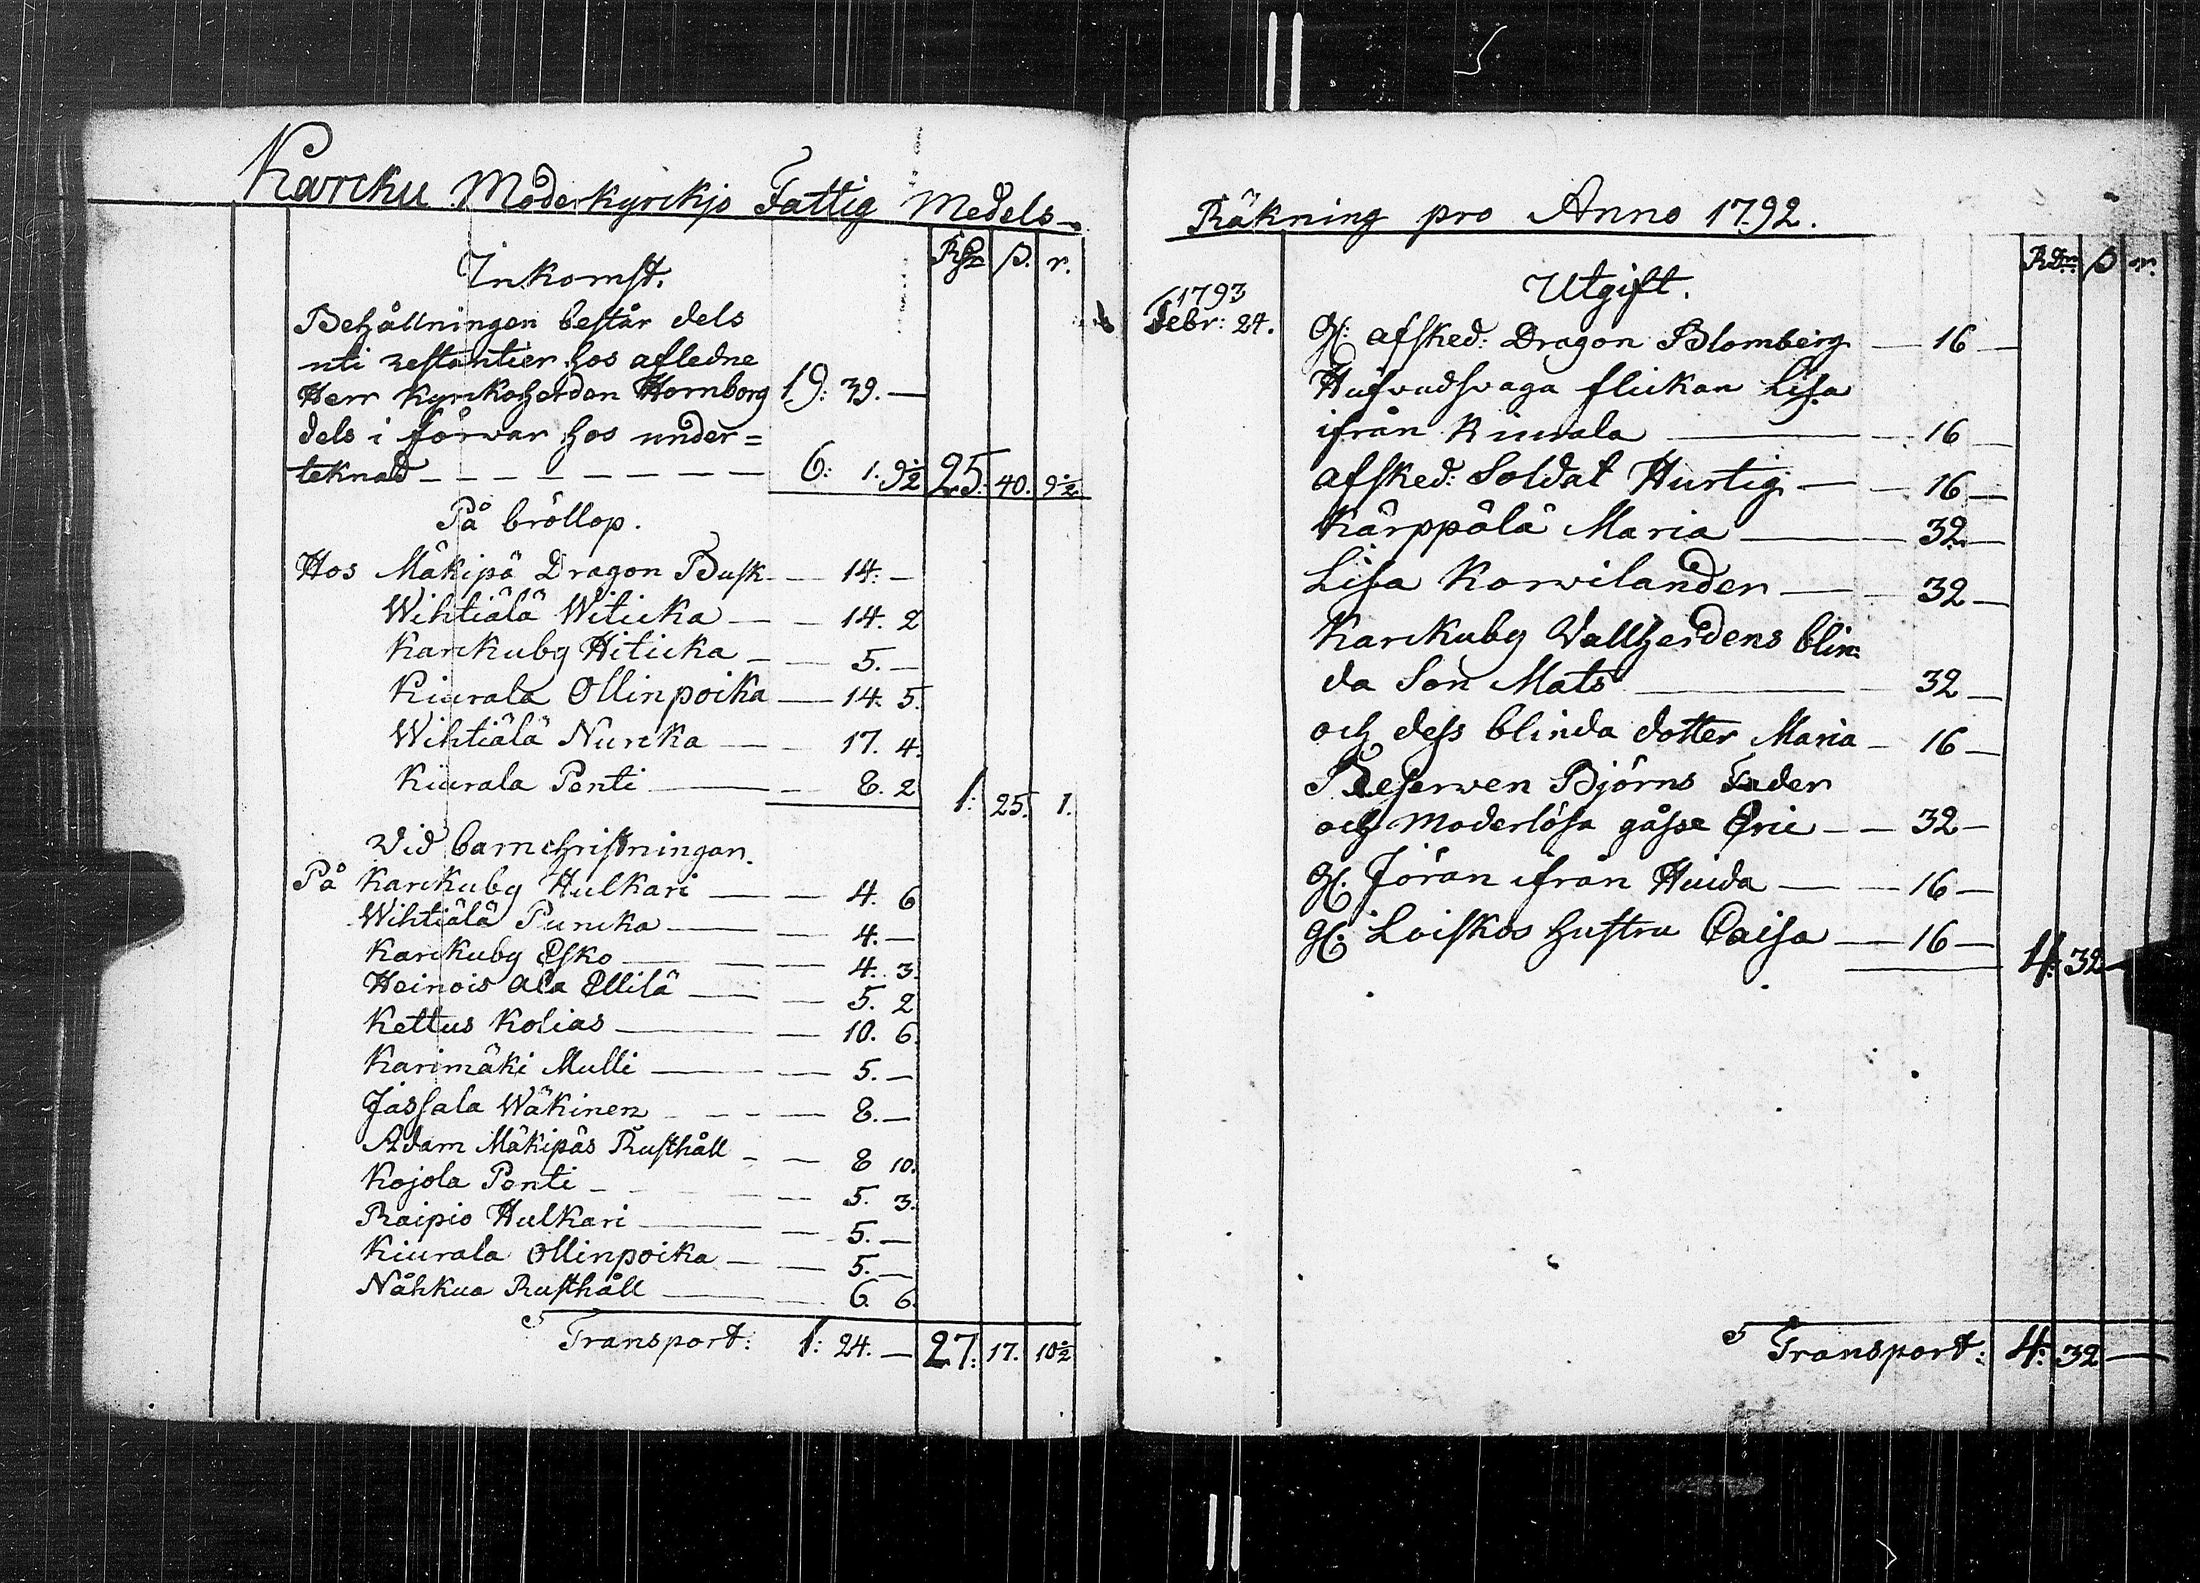 Karcku Moderkyrckjo Fattig Medels
Inkomst.
Rdr ß. r.
Behållningen består dels
uti restantier hos afledne
Herr Kyrckoherden Hornborg 19: 39. —
dels i förwar hos under=
teknad — — — — — — — 6: 1. 9½ 25: 40. 9½
På bröllop.
Hos Mäkipä Dragon Busk — 14. —
Wihtiälä Witicka — — 14. 2
Karckuby Hiticka — — 5. —
Kiurala Ollinpoika — 14. 5.
Wihtiälä Nurcka — — 17. 4.
Kiurala Penti — — 8. 2 1: 25. 1.
Vid barnchristningar.
På Karckuby Hulkari — — 4. 6
Wihtiälä Puncka — — 4. —
Karckuby Esko — — 4. 3.
Heinois Ala Ellilä — — 5. 2
Kettus Kolias — — 10. 6.
Karimäki Mulli — — 5. —
Jassala Wäkinen — — — 8. —
Adam Mäkipäs Rusthåll — — 8 10.
Kojola Penti — — — 5. 3.
Raipio Hulkari — — 5. —
Kiurala Ollinpoika — — 5. —
Nåhkua Rusthåll — — 6. 6.
Transport: 1: 24. — 27: 17. 10½
Räkning pro Anno 1792.
Utgift.
Rdr ß r.
1793
Febr: 24.
Gl: afsked: Dragon Blomberg — 16 —
Hufvudsvaga flickan Lisa
ifrån Kiurala — — 16 —
afsked: Soldat Hurtig — — 16 —
Kärppälä Maria — 32 —
Lisa Korvilander — — 32 —
Karckuby Vallherdens blin=
da Son Mats — — 32 —
och dess blinda dotter Maria — 16 —
Reserven Björns Fader
och Moderlösa gåsse Eric — — 32 —
Gl. Jöran ifrån Huida — — 16 —
Gl. Loiskos hustru Caisa — 16 — 4: 32 —
Transport: 4: 32 —